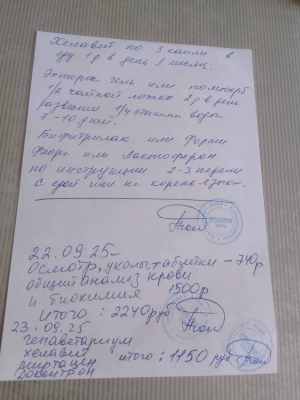 Хелавит по 3 капли в
еду 1 р в день 1 месяц.
Энтерос гель или полисорб
1/2 чайной ложки 2 р в день
развести 1/4 стакана воды
7-10 дней.
Бифитрилак или Форти
Флора или Лактоферон
по инструкции 2-3 недели
с едой или на корень языка.
22.09.25-
Осмотр, уколы, таблетки - 740р
общий анализ крови
и биохимия 1500р
Итого: 2240 руб
23.09.25
Гепаветариум
хелавит итого: 1150 руб